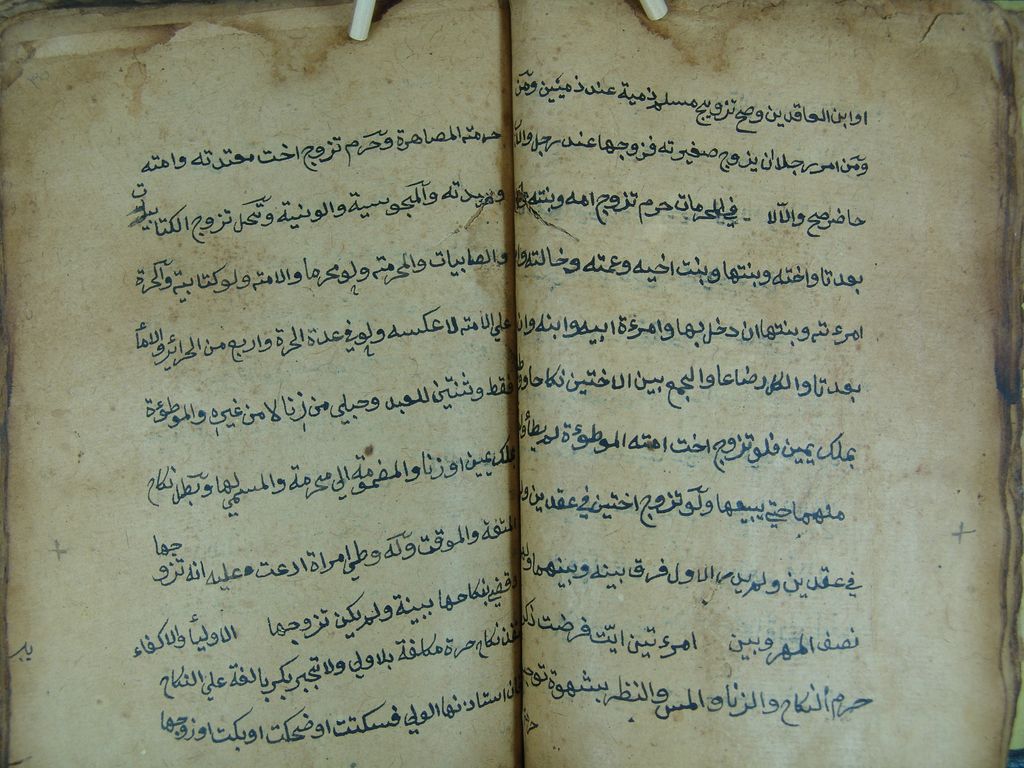 او ابن العاقدين وصح تزويج مسلم ذمية عند ذميين ومن
ومن امر رجلا ان يزوج صغيرته فزوجها عند رجل والاب
حاضر صح والآلا في المحرمات حرم تزوج امه وبنته وان
بعدتا واخته وبنتها وبنت اخيه وعمته وخالته وام
امرءته وبنتها ان دخل بها وامرءة ابيه وابنه وان
بعدتا والكل رضاعا والجمع بين الاختين نكاحا ووطأ
بملك يمين فلو تزوج اخت امته الموطوءة لم يطأ واحدة
منهما حتي يبيعها ولو تزوج اختين في عقدين ولم
في عقدين ولم يدر الاول فرق بينه وبينهما ولهما
نصف المهر وبين امرءتين ايت فرضت ذكرا
حرم النكاح والزنا والمس والنظر بشهوة توجب
حرمة المصاهرة وحرم تزوج اخت معتدته وامته
وسيدته والمجوسية والوثنية وتحل تزوج الكتابيات
والصابيات والمحرمة ولو محرما والامة ولو كتابية والحرة
علي الامة لا عكسه ولو في عدة الحرة واربع من الحرائر والاماء
فقط وثنتين للعبد وحبلي من زنا لا من غيره والموطوءة
بملك يمين او زنا والمضمومة الي محرمة والمسمي لها وبطل نكاح
المتعة والموقت وله وطي امراة ادعت عليه انه تزوجها
وقضي بنكاحها ببينة ولم يكن تزوجها الاوليأ والاكفاء
نفذ نكاح حرة مكلفة بلا ولي ولا تجبر بكر بالغة علي النكاح
فان استاذنها الولي فسكتت او ضحكت او بكت او زوجها